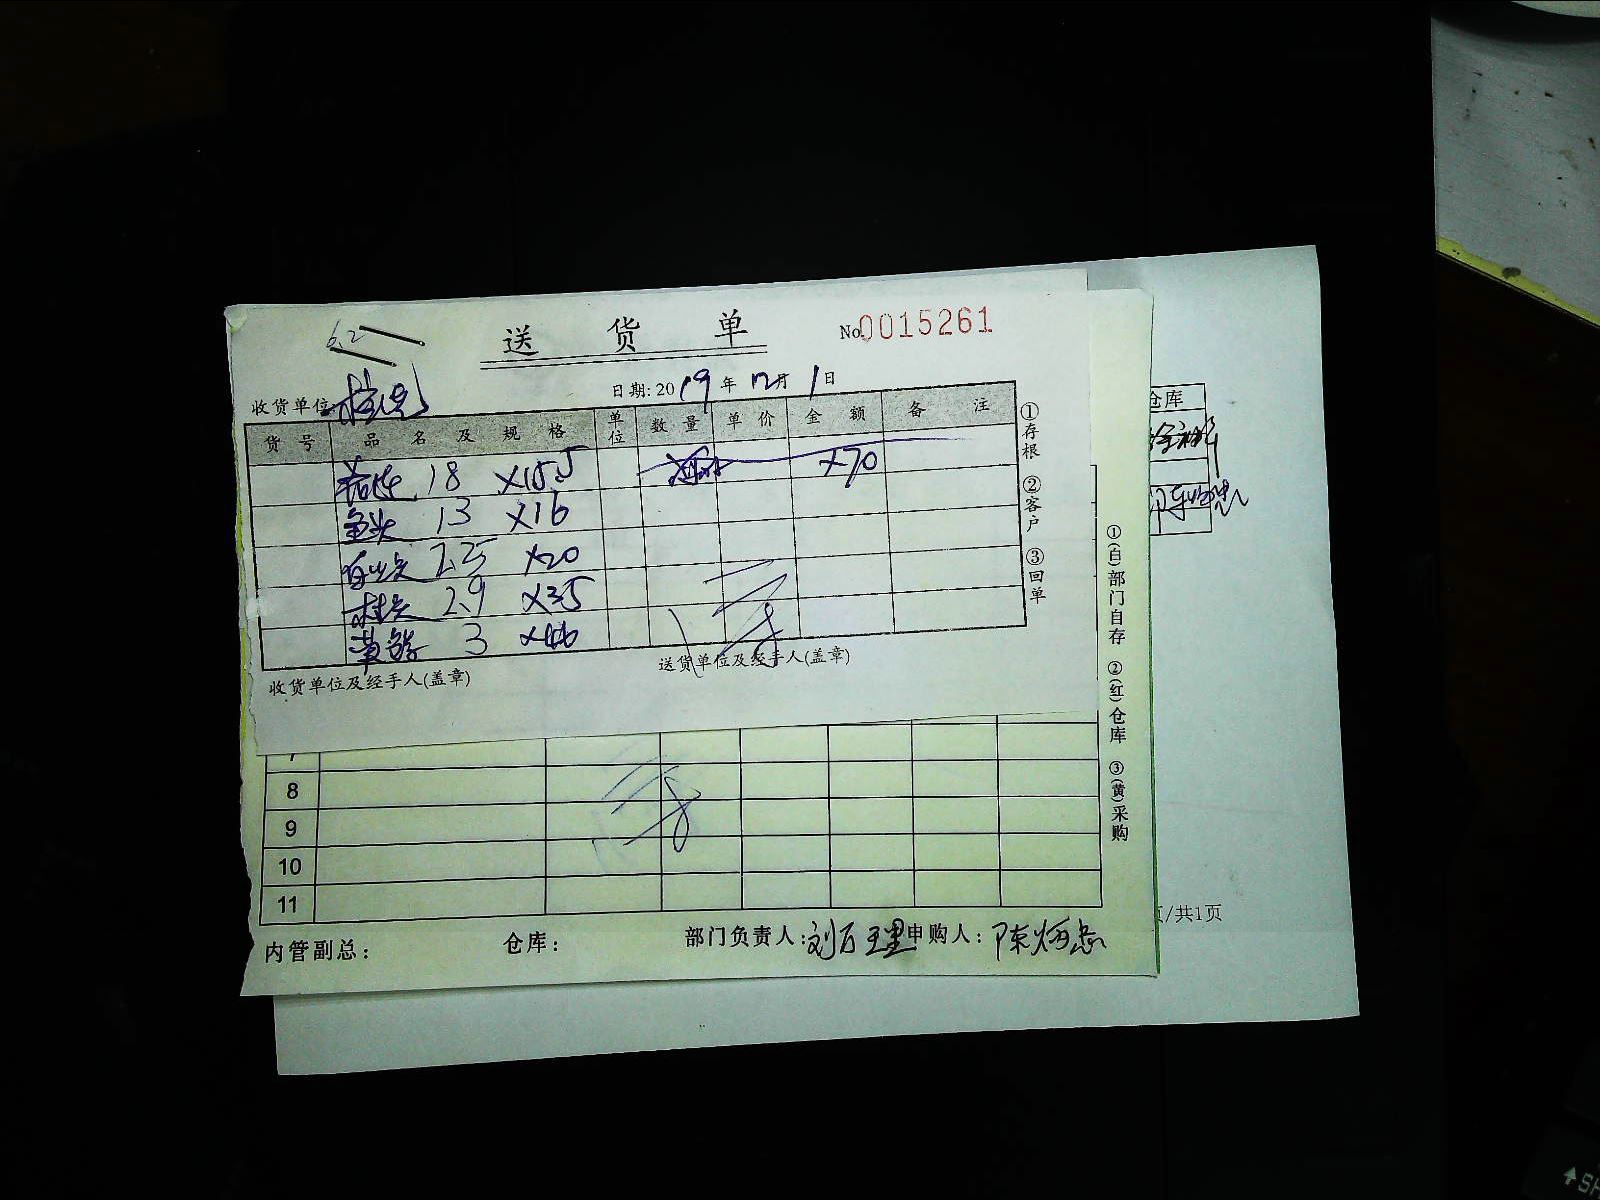 6.2
送 货 单 No.0015261
收货单位 日期:2019年12月1日
货号 品名及规格 单位 数量 单价 金额 备注
18 X15.5 X70
鱼头 13 X16
2.25 X20
2.9 X35
3 X46
收货单位及经手人(盖章) 送货单位及经手人(盖章)
①存根 ②客户 ③回单
7
8
9
10
11
内管副总: 仓库: 部门负责人: 刘万理 申购人: 陈炳忠
①(白)部门自存 ②(红)仓库 ③(黄)采购
仓库
页/共1页